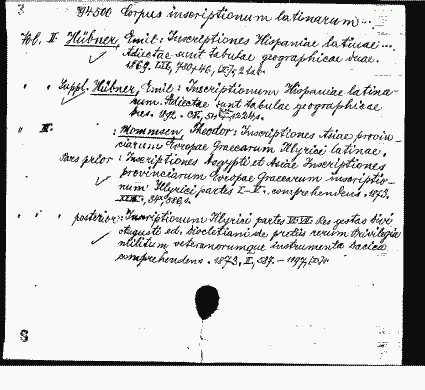 Corpus inscriptionum latinarum...
Vol. II. Hübner, Emil: Inscriptiones Hispaniae latinae...
Adiectae sunt tabulae geographicae duae.
1869.
" " Suppl. Hübner, Emil: Inscriptionum Hispaniae latina-
rum. Adiectae sunt tabulae geographicae
1892.
" III. : Mommsen, Theodor: Inscriptiones Asiae provin-
ciarum Europae Graecarum Illyrici latinae.
Pars prior: Inscriptiones Aegypti et Asiae Inscriptiones
provinciarum Europae Graecarum inscriptio-
num Illyrici partes I-V. comprehendens. 1873.
" " " posterior: Inscriptionum Illyrici partes VI VII Res gestas divi
Augusti ed. diocletiani de pretiis rerum privilegia
militum veteranorumque instrumenta dacica
comprehendens. 1873. II,